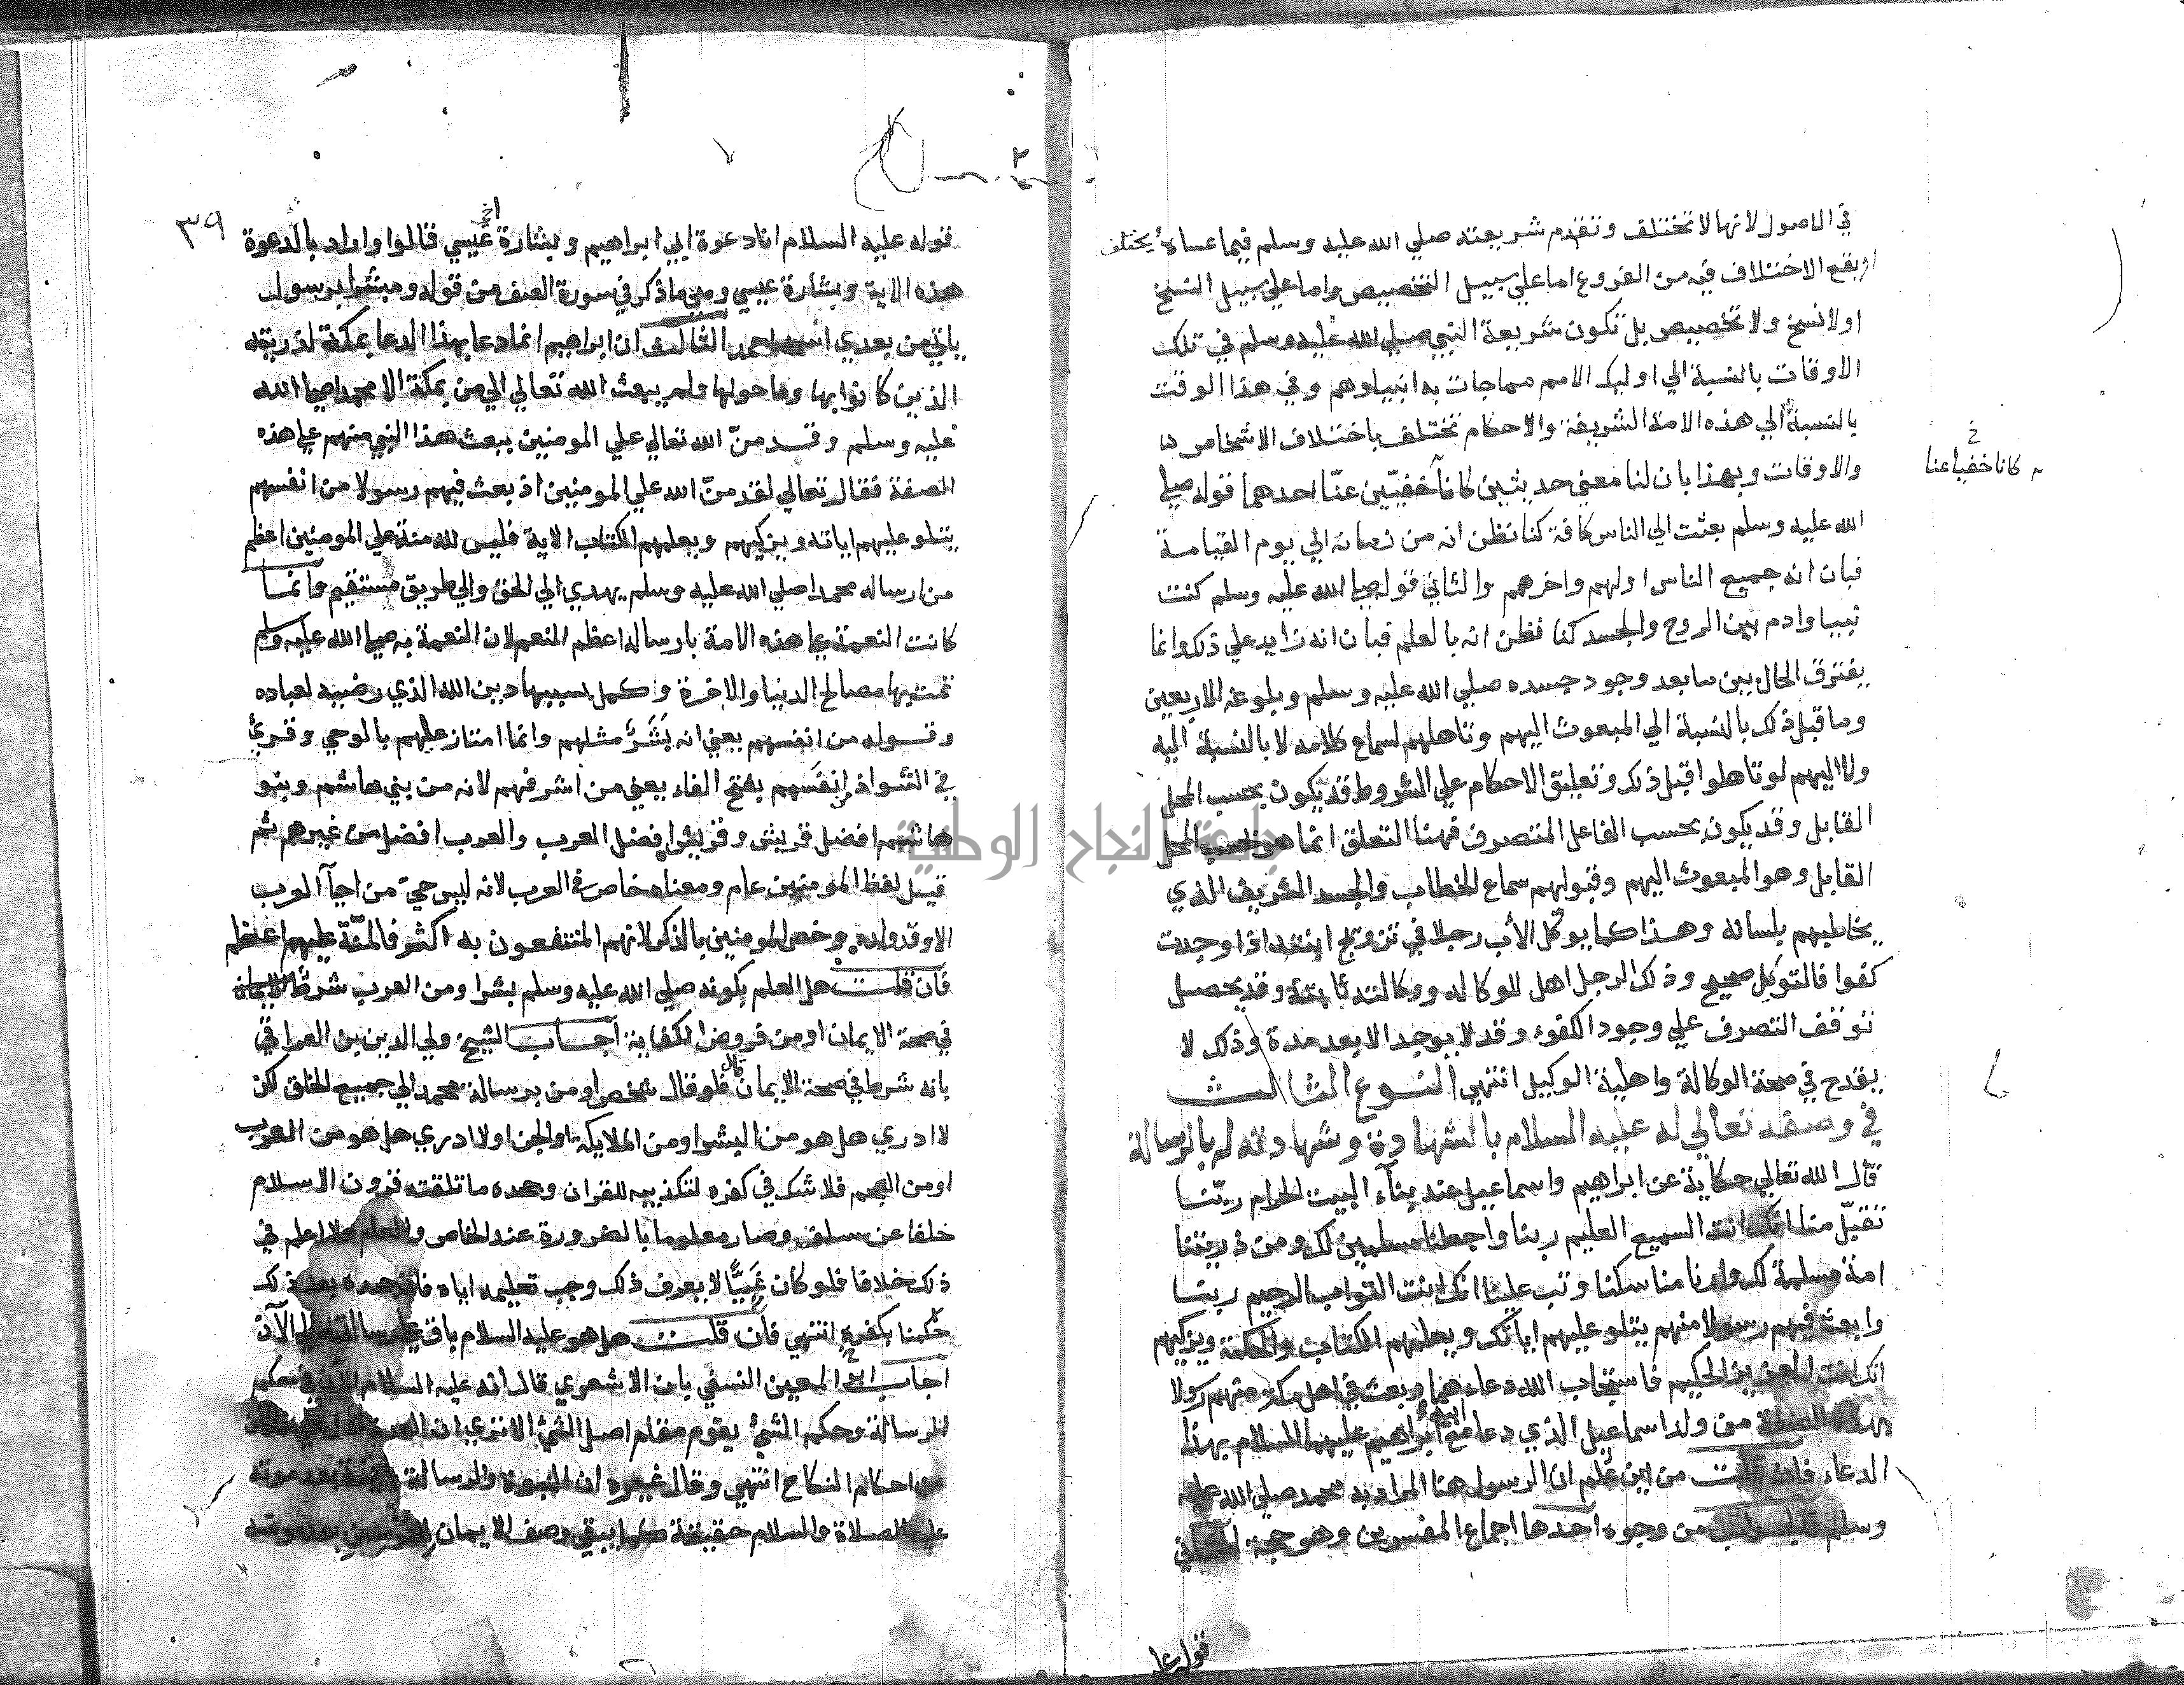 في الاصول لانها لا تختلف وتقدم شريعته صلي الله عليه وسلم فيما عساه يختلف
او يقع الاختلاف فيه من الفروع اما علي سبيل التخصيص واما علي سبيل النسخ
اولا نسخ ولا تخصيص بل تكون شريعة النبي صلي الله عليه وسلم في تلك
الاوقات بالنسبة الي اوليك الامم مما جات به انبياوهم وفي هذا الوقت
بالنسبة الي هذه الامة الشريفة والاحكام تختلف باختلاف الاشخاص
والاوقات وبهذا بان لنا معني حديثين كانا خفيين عنا احدهما قوله صلي
كانا خفيا عنا
الله عليه وسلم بعثت الي الناس كافة كنا نظن انه من زمانه الي يوم القيامة
فبان انه جميع الناس اولهم واخرهم والثاني قوله صلي الله عليه وسلم كنت
نبيا وادم بين الروح والجسد كنا نظن انه بالعلم فبان انه زايد علي ذلك وانما
يفترق الحال بين ما بعد وجود جسده صلي الله عليه وسلم وبلوغه الاربعين
وما قبل ذلك بالنسبة الي المبعوث اليهم وتاهلهم لسماع كلامه لا بالنسبة اليه
ولا اليهم لو تاهلوا قبل ذلك وتعليق الاحكام علي الشروط قد يكون بحسب المحل
القابل وقد يكون بحسب الفاعل المتصرف فهنا التعلق انما هو بحسب المحل
القابل وهو المبعوث اليهم وقبولهم سماع الخطاب والجسد الشريف الذي
يخاطبهم بلسانه وهذا كما يوكل الأب رجلا في تزويج ابنته اذا وجدت
كفوا فالتوكل صحيح وذلك الرجل اهل للوكاله ووكالته ثابتة وقد يحصل
توقف التصرف علي وجود الكفوء وقد لا يوجد الا بعد مدة وذلك لا
يقدح في صحة الوكالة واهلية الوكيل انتهي النوع الثالث
في وصفه تعالي له عليه السلام بالشهادة وشهادته له بالرسالة
قال الله تعالي حكاية عن ابراهيم واسماعيل عند بنآء البيت الحرام ربنا
تقبل منا انك انت السميع العليم ربنا واجعلنا مسلمين لك ومن ذريتنا
امة مسلمة لك وارنا مناسكنا وتب علينا انك انت التواب الرحيم ربنا
وابعث فيهم رسولا منهم يتلو عليهم اياتك ويعلمهم الكتاب والحكمة ويزكيهم
انك انت العزيز الحكيم فاستجاب الله دعاءهما وبعث في اهل مكة منهم رسولا
بهذه الصفة من ولد اسماعيل الذي دعا مع ابيه ابراهيم عليهما السلام بهذا
الدعاء فان قلت من اين علم ان الرسول هنا المراد به محمد صلي الله عليه
وسلم فالجواب من وجوه احدها اجماع المفسرين وهو حجة الثاني
قوله عليه السلام انا دعوة ابي ابراهيم وبشارة اخي عيسي قالوا واراد بالدعوة
٣٩
هذه الاية وبشارة عيسي وهي ما ذكر في سورة الصف من قوله ومبشرا برسول
ياتي من بعدي اسمه احمد الثالث ان ابراهيم انما دعا بهذا الدعا بمكة لذريته
الذين كانوا بها وما حولها ولم يبعث الله تعالي الي من بمكة الا محمدا صلي الله
عليه وسلم وقد من الله تعالي علي المومنين ببعث هذا النبي منهم علي هذه
الصفة فقال تعالي لقد من الله علي المومنين اذ بعث فيهم رسولا من انفسهم
يتلو عليهم اياته ويزكيهم ويعلمهم الكتاب الاية فليس لله منة علي المومنين اعظم
من ارساله محمدا صلي الله عليه وسلم يهدي الي الحق والي طريق مستقيم وانما
كانت النعمة علي هذه الامة بارساله اعظم النعم لان النعمة به صلي الله عليه وسلم
تمت بها مصالح الدنيا والاخرة وكمل بسببها دين الله الذي رضيه لعباده
وقوله من انفسهم يعني انه بشر مثلهم وانما امتاز عليهم بالوحي وقرئ
في الشواذ انفسهم بفتح الفاء يعني من اشرفهم لانه من بني هاشم وبنو
هاشم افضل قريش وقريش افضل العرب والعرب افضل من غيرهم ثم
قيل لفظ المومنين عام ومعناه خاص في العرب لانه ليس حي من احيآ العرب
الا وقد ولده وخص المومنين بالذكر لانهم المنتفعون به اكثر فالمنة عليهم اعظم
فان قلت هل العلم بكونه صلي الله عليه وسلم بشرا ومن العرب شرط
في صحة الايمان او من فروض الكفاية اجاب الشيخ ولي الدين بن العراقي
بانه شرط في صحة الايمان قال فلو قال شخص اومن برسالة محمد الي جميع الخلق لكن
لا ادري هل هو من البشر او من الملايكة او الجن او لا ادري هل هو من العرب
او من العجم فلا شك في كفره لتكذيبه للقران وجحده ما تلقته قرون الاسلام
خلفا عن سلف وصار معلوما بالضرورة عند الخاص والعام ولا اعلم في
ذلك خلافا فلو كان غبيا لا يعرف ذلك وجب تعليمه اياه فان جحده بعد ذلك
حكمنا بكفره انتهي فان قلت هل هو عليه السلام باق علي رسالته الي الآن
اجاب ابو المعين النسفي بان الاشعري قال انه عليه السلام الآن في حكم
الرسالة وحكم الشئ يقوم مقام اصل الشئ الا تري ان العدة
من احكام النكاح انتهي وقال غيره ان النبوة والرسالة باقية بعد موته
عليه الصلاة والسلام حقيقة كما يبقي وصف الايمان للمؤمن بعد موته
جامعة النجاح الوطنية